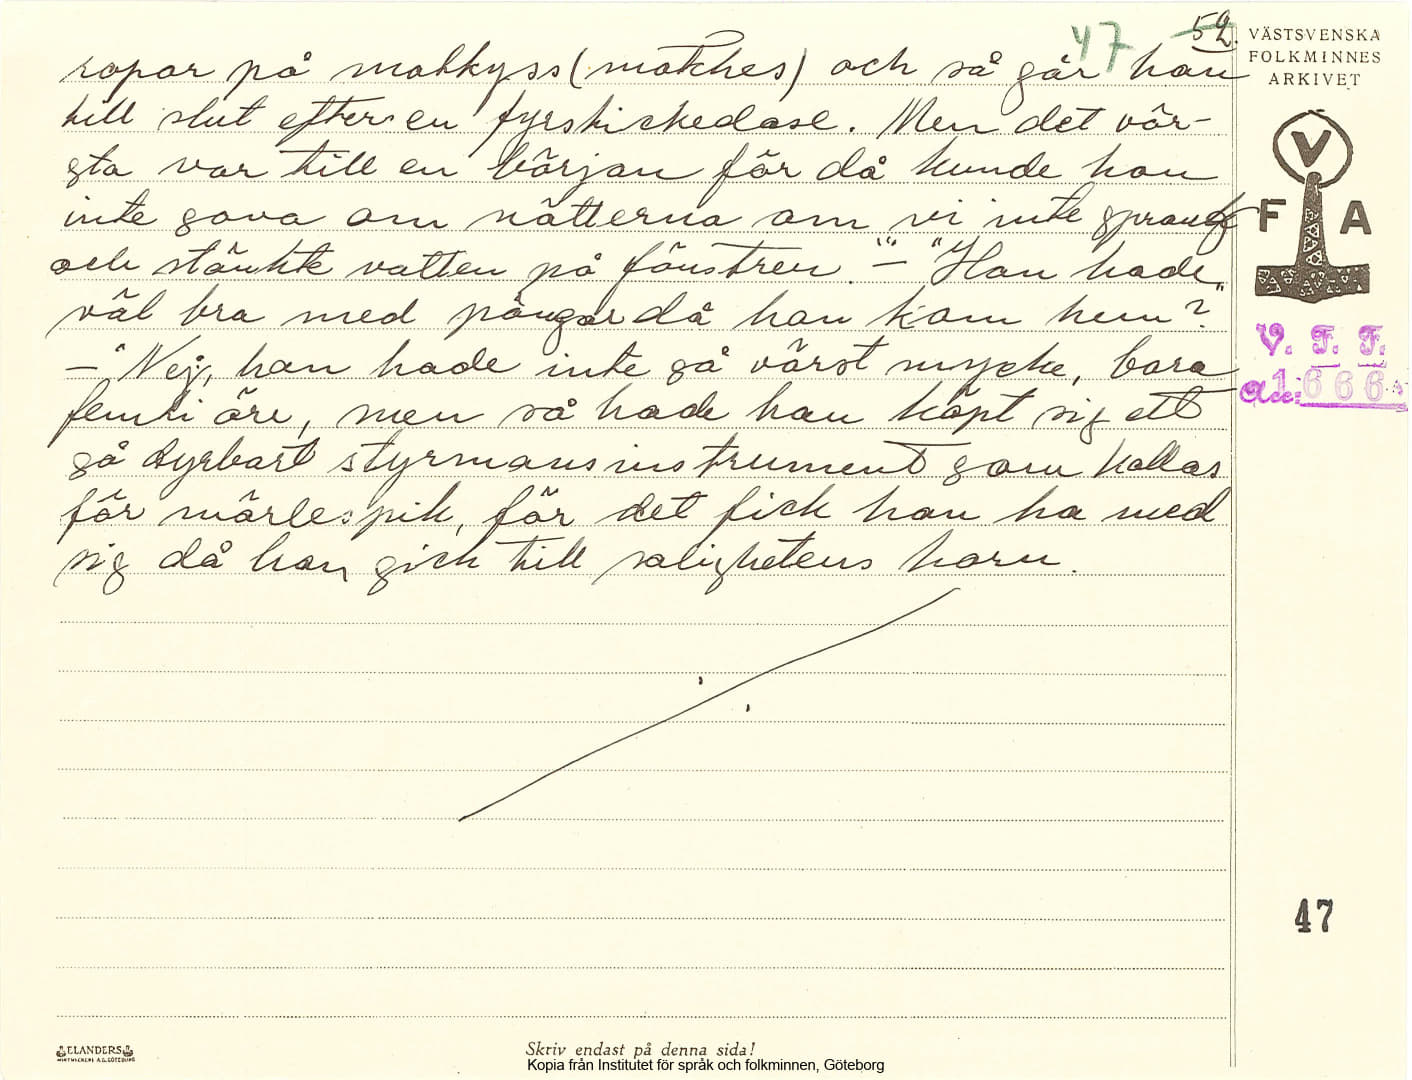 47 52.
ropar på mabkyss (matches) och så går han
till slut efter en fyrstickedase. Men det vär-
sta var till en början för då kunde han
inte sova om nätterna om vi inte sprang
och stänkte vatten på fönstren."' – "Han hade
väl bra med pängar då han kom hem?"
– "Nej, han hade inte så värst mycke, bara
femti öre, men så hade han köpt sig ett
så dyrbart styrmansinstrument som kallas
för märlespik, för det fick han ha med
sig då han gick till salighetens hamn.
VÄSTSVENSKA
FOLKMINNES
ARKIVET
V
F A
V. F. F.
Acc: 1666
47
ELANDERS
Skriv endast på denna sida!
Kopia från Institutet för språk och folkminnen, Göteborg